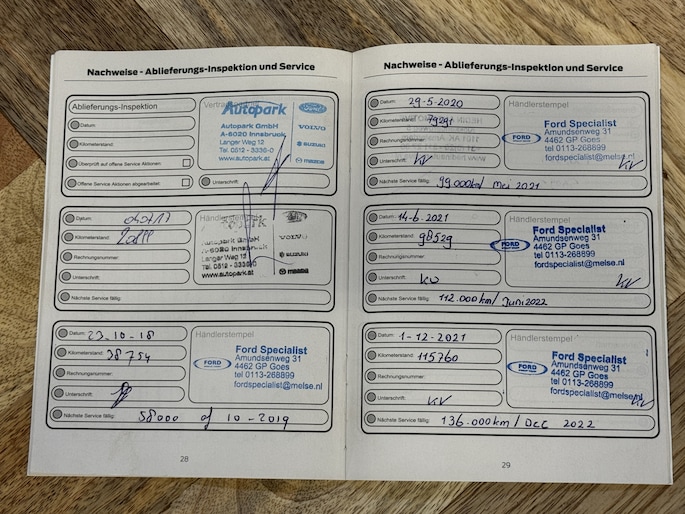 Nachweise - Ablieferungs-Inspektion und Service
Ablieferungs-Inspektion
Datum:
Kilometerstand:
Überprüft auf offene Service Aktionen
Offene Service Aktionen abgearbeitet:
Autopark
Ford
Autopark GmbH
VOLVO
A-6020 Innsbruck
Langer Weg 12
SUZUKI
Tel. 0512 - 3336-0
www.autopark.at
mazda
Unterschrift:
Datum:
Kilometerstand:
Rechnungsnummer:
Unterschrift:
Nächste Service fällig:
Händlerstempel
Autopark GmbH
VOLVO
A-6020 Innsbruck
Langer Weg 12
SUZUKI
Tel. 0512 - 3336-0
www.autopark.at
mazda
Datum: 23-10-18
Kilometerstand: 38754
Rechnungsnummer:
Unterschrift:
Nächste Service fällig: 58000 of 10-2019
Händlerstempel
Ford
Ford Specialist
Amundsenweg 31
4462 GP Goes
tel 0113-268899
fordspecialist@melse.nl
28
Nachweise - Ablieferungs-Inspektion und Service
Datum: 29-5-2020
Kilometerstand: 79291
Rechnungsnummer:
Unterschrift: KV
Nächste Service fällig: 99.000km/ mei 2021
Händlerstempel
Ford
Ford Specialist
Amundsenweg 31
4462 GP Goes
tel 0113-268899
fordspecialist@melse.nl
KV
Datum: 14-6-2021
Kilometerstand: 98529
Rechnungsnummer:
Unterschrift: KV
Nächste Service fällig: 112.000km/ Juni 2022
Ford
Ford Specialist
Amundsenweg 31
4462 GP Goes
tel 0113-268899
fordspecialist@melse.nl
KV
Datum: 1-12-2021
Kilometerstand: 115760
Rechnungsnummer:
Unterschrift: KV
Nächste Service fällig: 136.000km/ Dec 2022
Händlerstempel
Ford
Ford Specialist
Amundsenweg 31
4462 GP Goes
tel 0113-268899
fordspecialist@melse.nl
KV
29